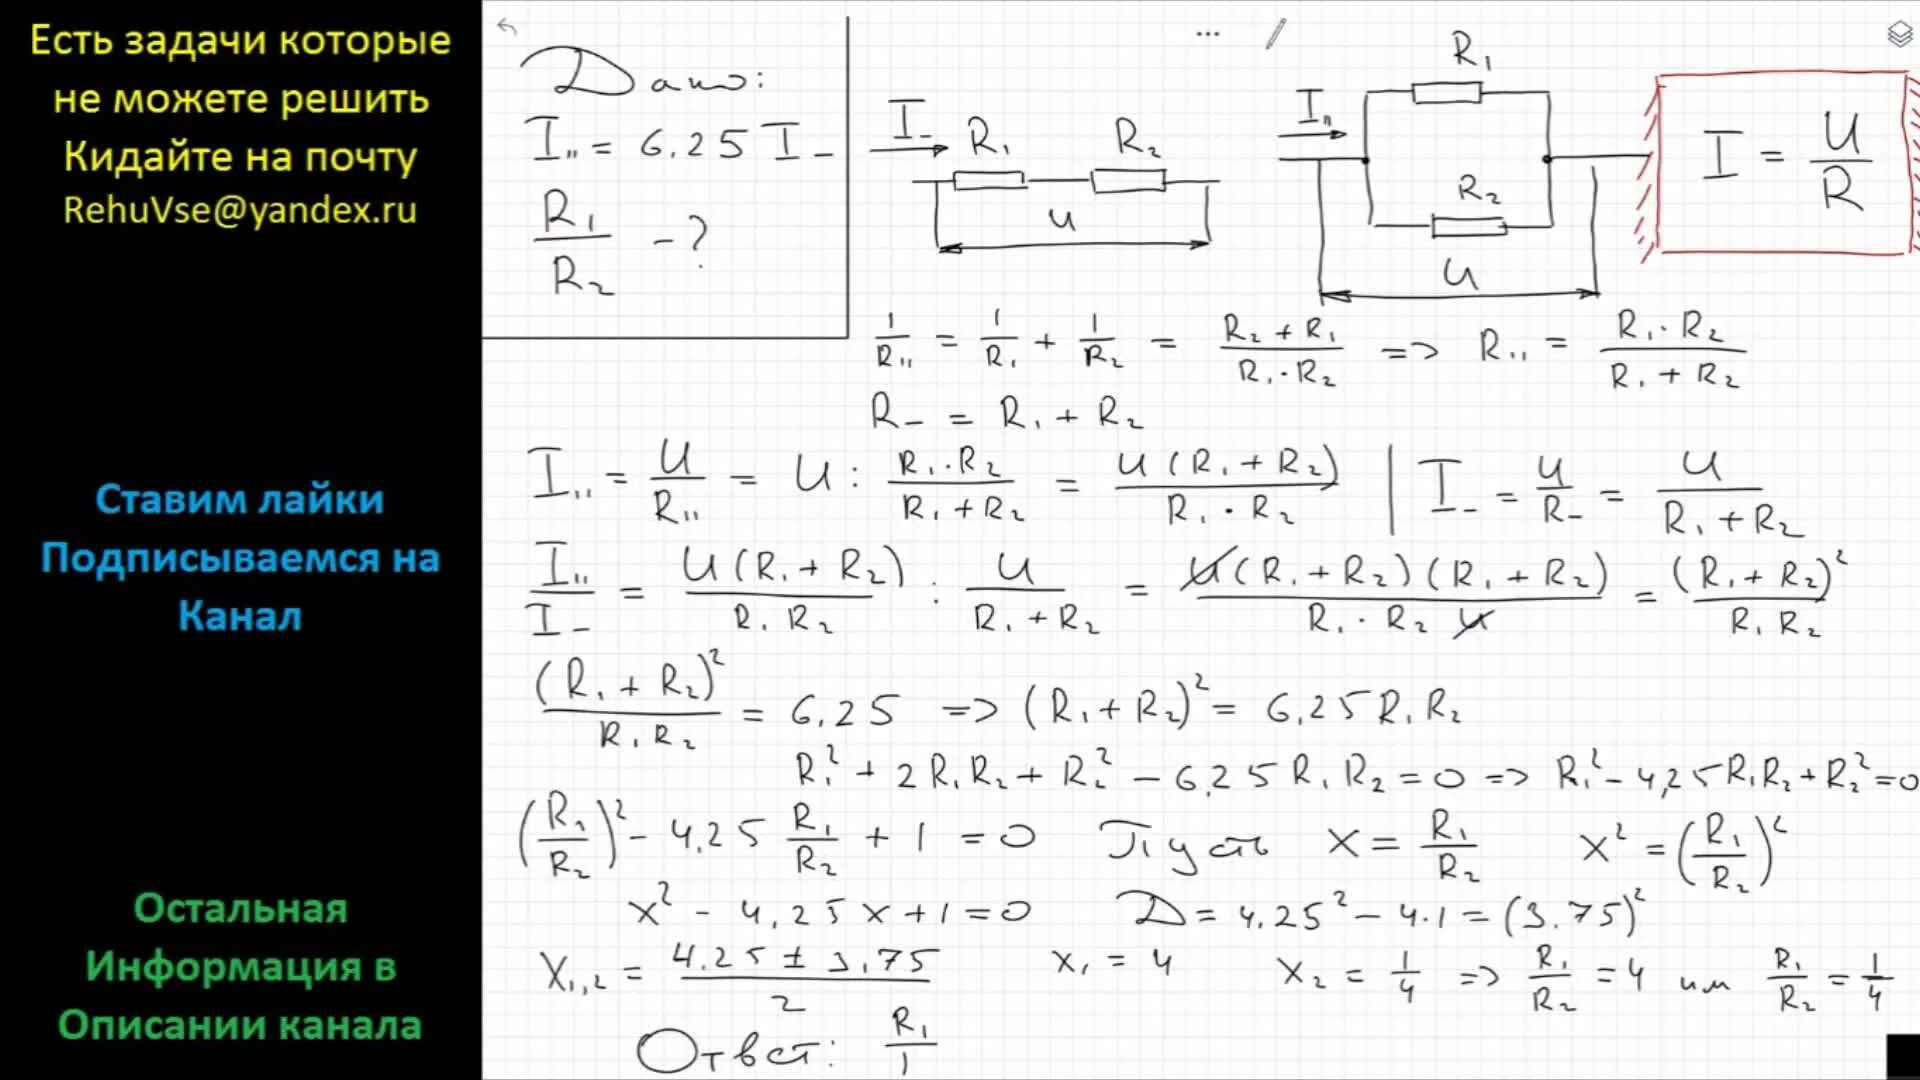 Есть задачи которые
не можете решить
Кидайте на почту
RehuVse@yandex.ru
Ставим лайки
Подписываемся на
Канал
Остальная
Информация в
Описании канала
Дано:
I₁₁ = 6.25 I₋
R₁/R₂ - ?
I₋ R₁ R₂ U
I₁₁ R₁ R₂ U
I = U/R
1/R₁₁ = 1/R₁ + 1/R₂ = (R₂ + R₁)/(R₁·R₂) => R₁₁ = (R₁·R₂)/(R₁ + R₂)
R₋ = R₁ + R₂
I₁₁ = U/R₁₁ = U : (R₁·R₂)/(R₁+R₂) = U(R₁+R₂)/(R₁·R₂) | I₋ = U/R₋ = U/(R₁+R₂)
I₁₁/I₋ = U(R₁+R₂)/(R₁R₂) : U/(R₁+R₂) = U(R₁+R₂)(R₁+R₂)/(R₁·R₂ U) = (R₁+R₂)²/(R₁R₂)
(R₁+R₂)²/(R₁R₂) = 6.25 => (R₁+R₂)² = 6.25 R₁R₂
R₁² + 2R₁R₂ + R₂² - 6.25 R₁R₂ = 0 => R₁² - 4,25R₁R₂ + R₂² = 0
(R₁/R₂)² - 4.25 R₁/R₂ + 1 = 0 Пусть x = R₁/R₂ x² = (R₁/R₂)²
x² - 4.25x + 1 = 0 D = 4.25² - 4·1 = (3.75)²
x₁,₂ = (4.25 ± 3.75)/2 x₁ = 4 x₂ = 1/4 => R₁/R₂ = 4 или R₁/R₂ = 1/4
Ответ: R₁/1